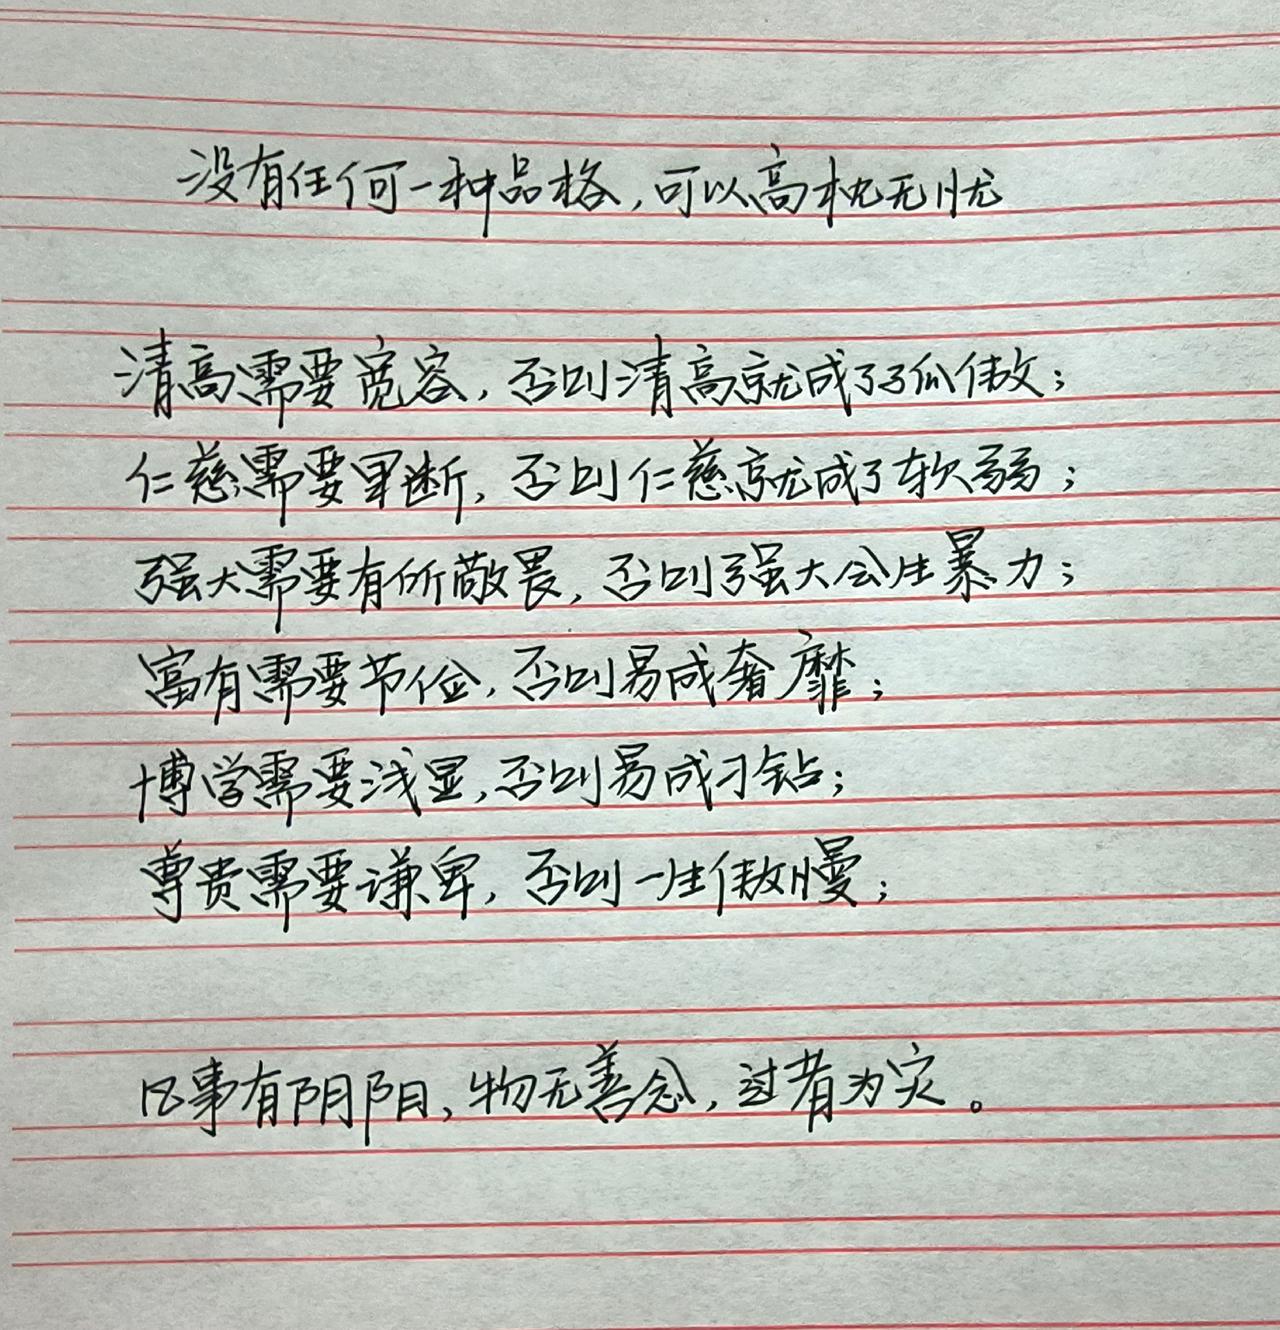 没有任何一种品格,可以高枕无忧
清高需要宽容,否则清高就成了孤傲;
仁慈需要果断,否则仁慈就成了软弱;
强大需要有所敬畏,否则强大会生暴力;
富有需要节俭,否则易成奢靡;
博学需要浅显,否则易成刁钻;
尊贵需要谦卑,否则一生傲慢;
凡事有阴阳,物无善念,过者为灾。